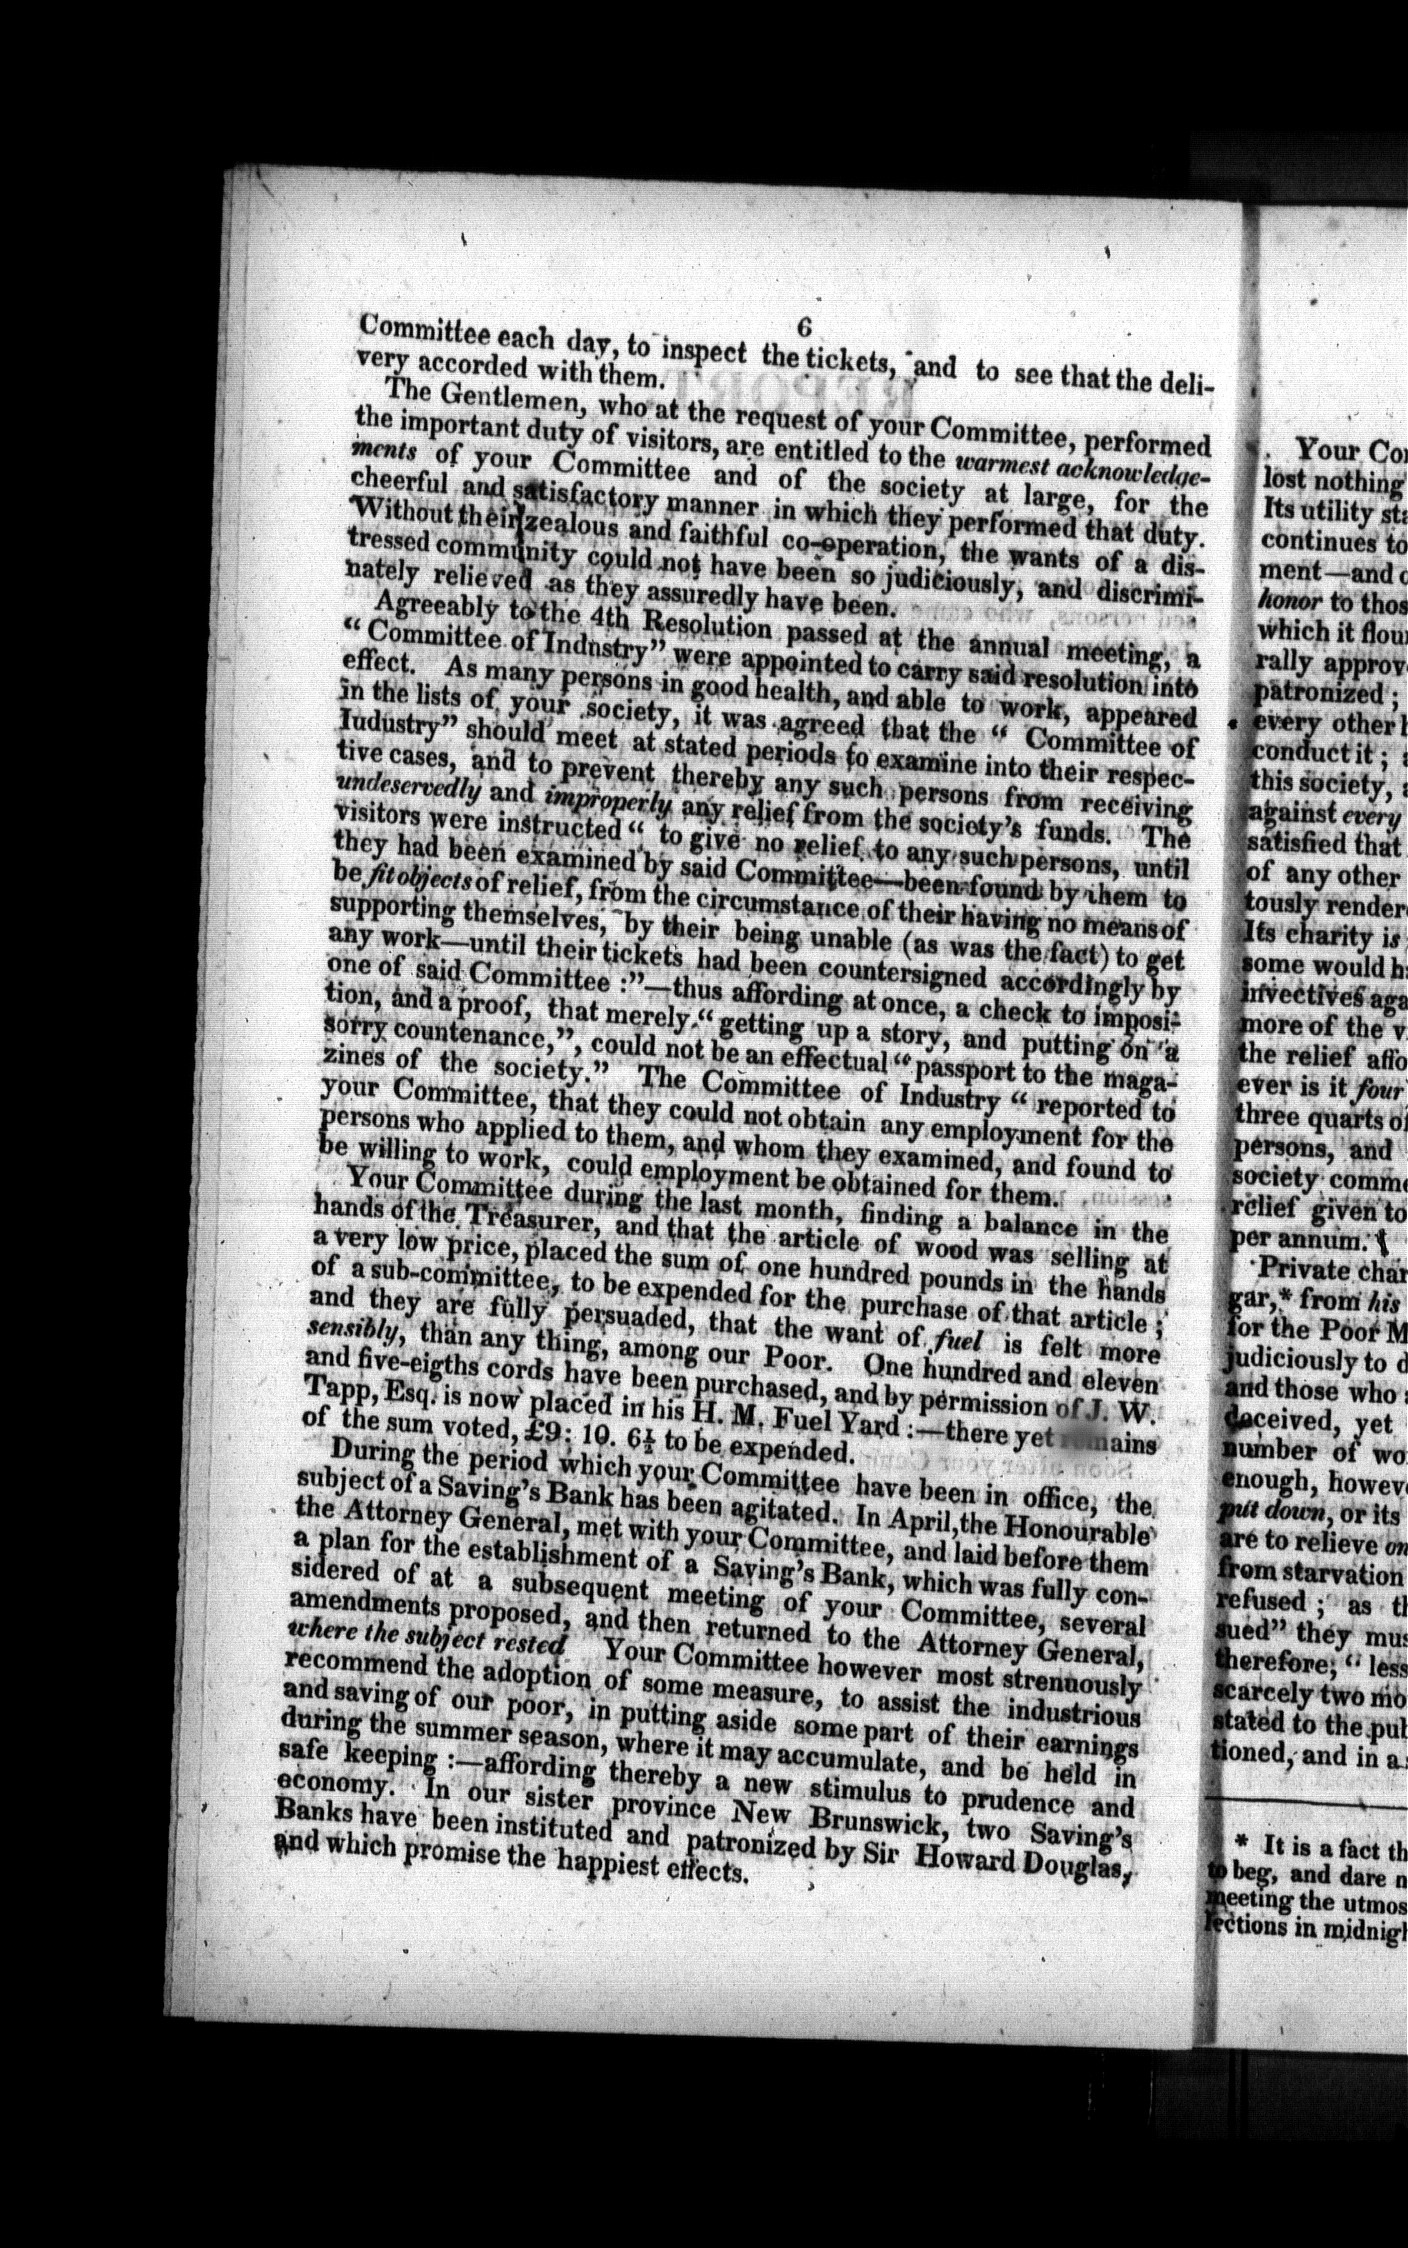 6
Committee each day, to inspect the tickets, and to see that the deli-
very accorded with them.
The Gentlemen, who at the request of your Committee, performed
the important duty of visitors, are entitled to the warmest acknowledge-
ments of your Committee and of the society at large, for the
cheerful and satisfactory manner in which they performed that duty.
Without their zealous and faithful co-operation, the wants of a dis-
tressed community could not have been so judiciously, and discrimi-
nately relieved as they assuredly have been.
Agreeably to the 4th Resolution passed at the annual meeting, a
“Committee of Industry” were appointed to carry said resolution into
effect. As many persons in good health, and able to work, appeared
in the lists of your society, it was agreed that the “Committee of
Iudustry” should meet at stated periods to examine into their respec-
tive cases, and to prevent thereby any such persons from receiving
undeservedly and improperly any relief from the society's funds. The
visitors were instructed “to give no relief to any such persons, until
they had been examined by said Committee—been found by them to
be fit objects of relief, from the circumstance of their having no means of
supporting themselves, by their being unable (as was the fact) to get
any work—until their tickets had been countersigned accordingly by
one of said Committee :”—thus affording at once, a check to imposi-
tion, and a proof, that merely “getting up a story, and putting on a
sorry countenance,” could not be an effectual “passport to the maga-
zines of the society.” The Committee of Industry “reported to
your Committee, that they could not obtain any employment for the
persons who applied to them, and whom they examined, and found to
be willing to work, could employment be obtained for them.
Your Committee during the last month, finding a balance in the
hands of the Treasurer, and that the article of wood was selling at
a very low price, placed the sum of one hundred pounds in the hands
of a sub-committee, to be expended for the purchase of that article;
and they are fully persuaded, that the want of fuel is felt more
sensibly, than any thing, among our Poor. One hundred and eleven
and five-eigths cords have been purchased, and by permission of J. W.
Tapp, Esq. is now placed in his H. M. Fuel Yard :—there yet remains
of the sum voted, £9: 10. 6½ to be expended.
During the period which your Committee have been in office, the
subject of a Saving's Bank has been agitated. In April, the Honourable
the Attorney General, met with your Committee, and laid before them
a plan for the establishment of a Saving's Bank, which was fully con-
sidered of at a subsequent meeting of your Committee, several
amendments proposed, and then returned to the Attorney General,
where the subject rested. Your Committee however most strenuously
recommend the adoption of some measure, to assist the industrious
and saving of our poor, in putting aside some part of their earnings
during the summer season, where it may accumulate, and be held in
safe keeping :—affording thereby a new stimulus to prudence and
economy. In our sister province New Brunswick, two Saving's
Banks have been instituted and patronized by Sir Howard Douglas,
and which promise the happiest effects.
Your
lost nothing
Its utility
continues to
ment—and
honor to thos
which it flou
rally approv
patronized;
every other
conduct it;
this society,
against every
satisfied that
of any other
tously render
Its charity is
some would
invectives aga
more of the
the relief affo
ever is it four
three quarts of
persons, and
society comm
relief given to
per annum.
Private char
gar,* from his
for the Poor M
judiciously to
and those who
deceived, yet
number of wo
enough, howev
put down, or its
are to relieve
from starvation
refused; as
sued” they mus
therefore, “less
scarcely two mo
stated to the pub
tioned, and in a
* It is a fact th
to beg, and dare
meeting the utmos
lections in midnigh